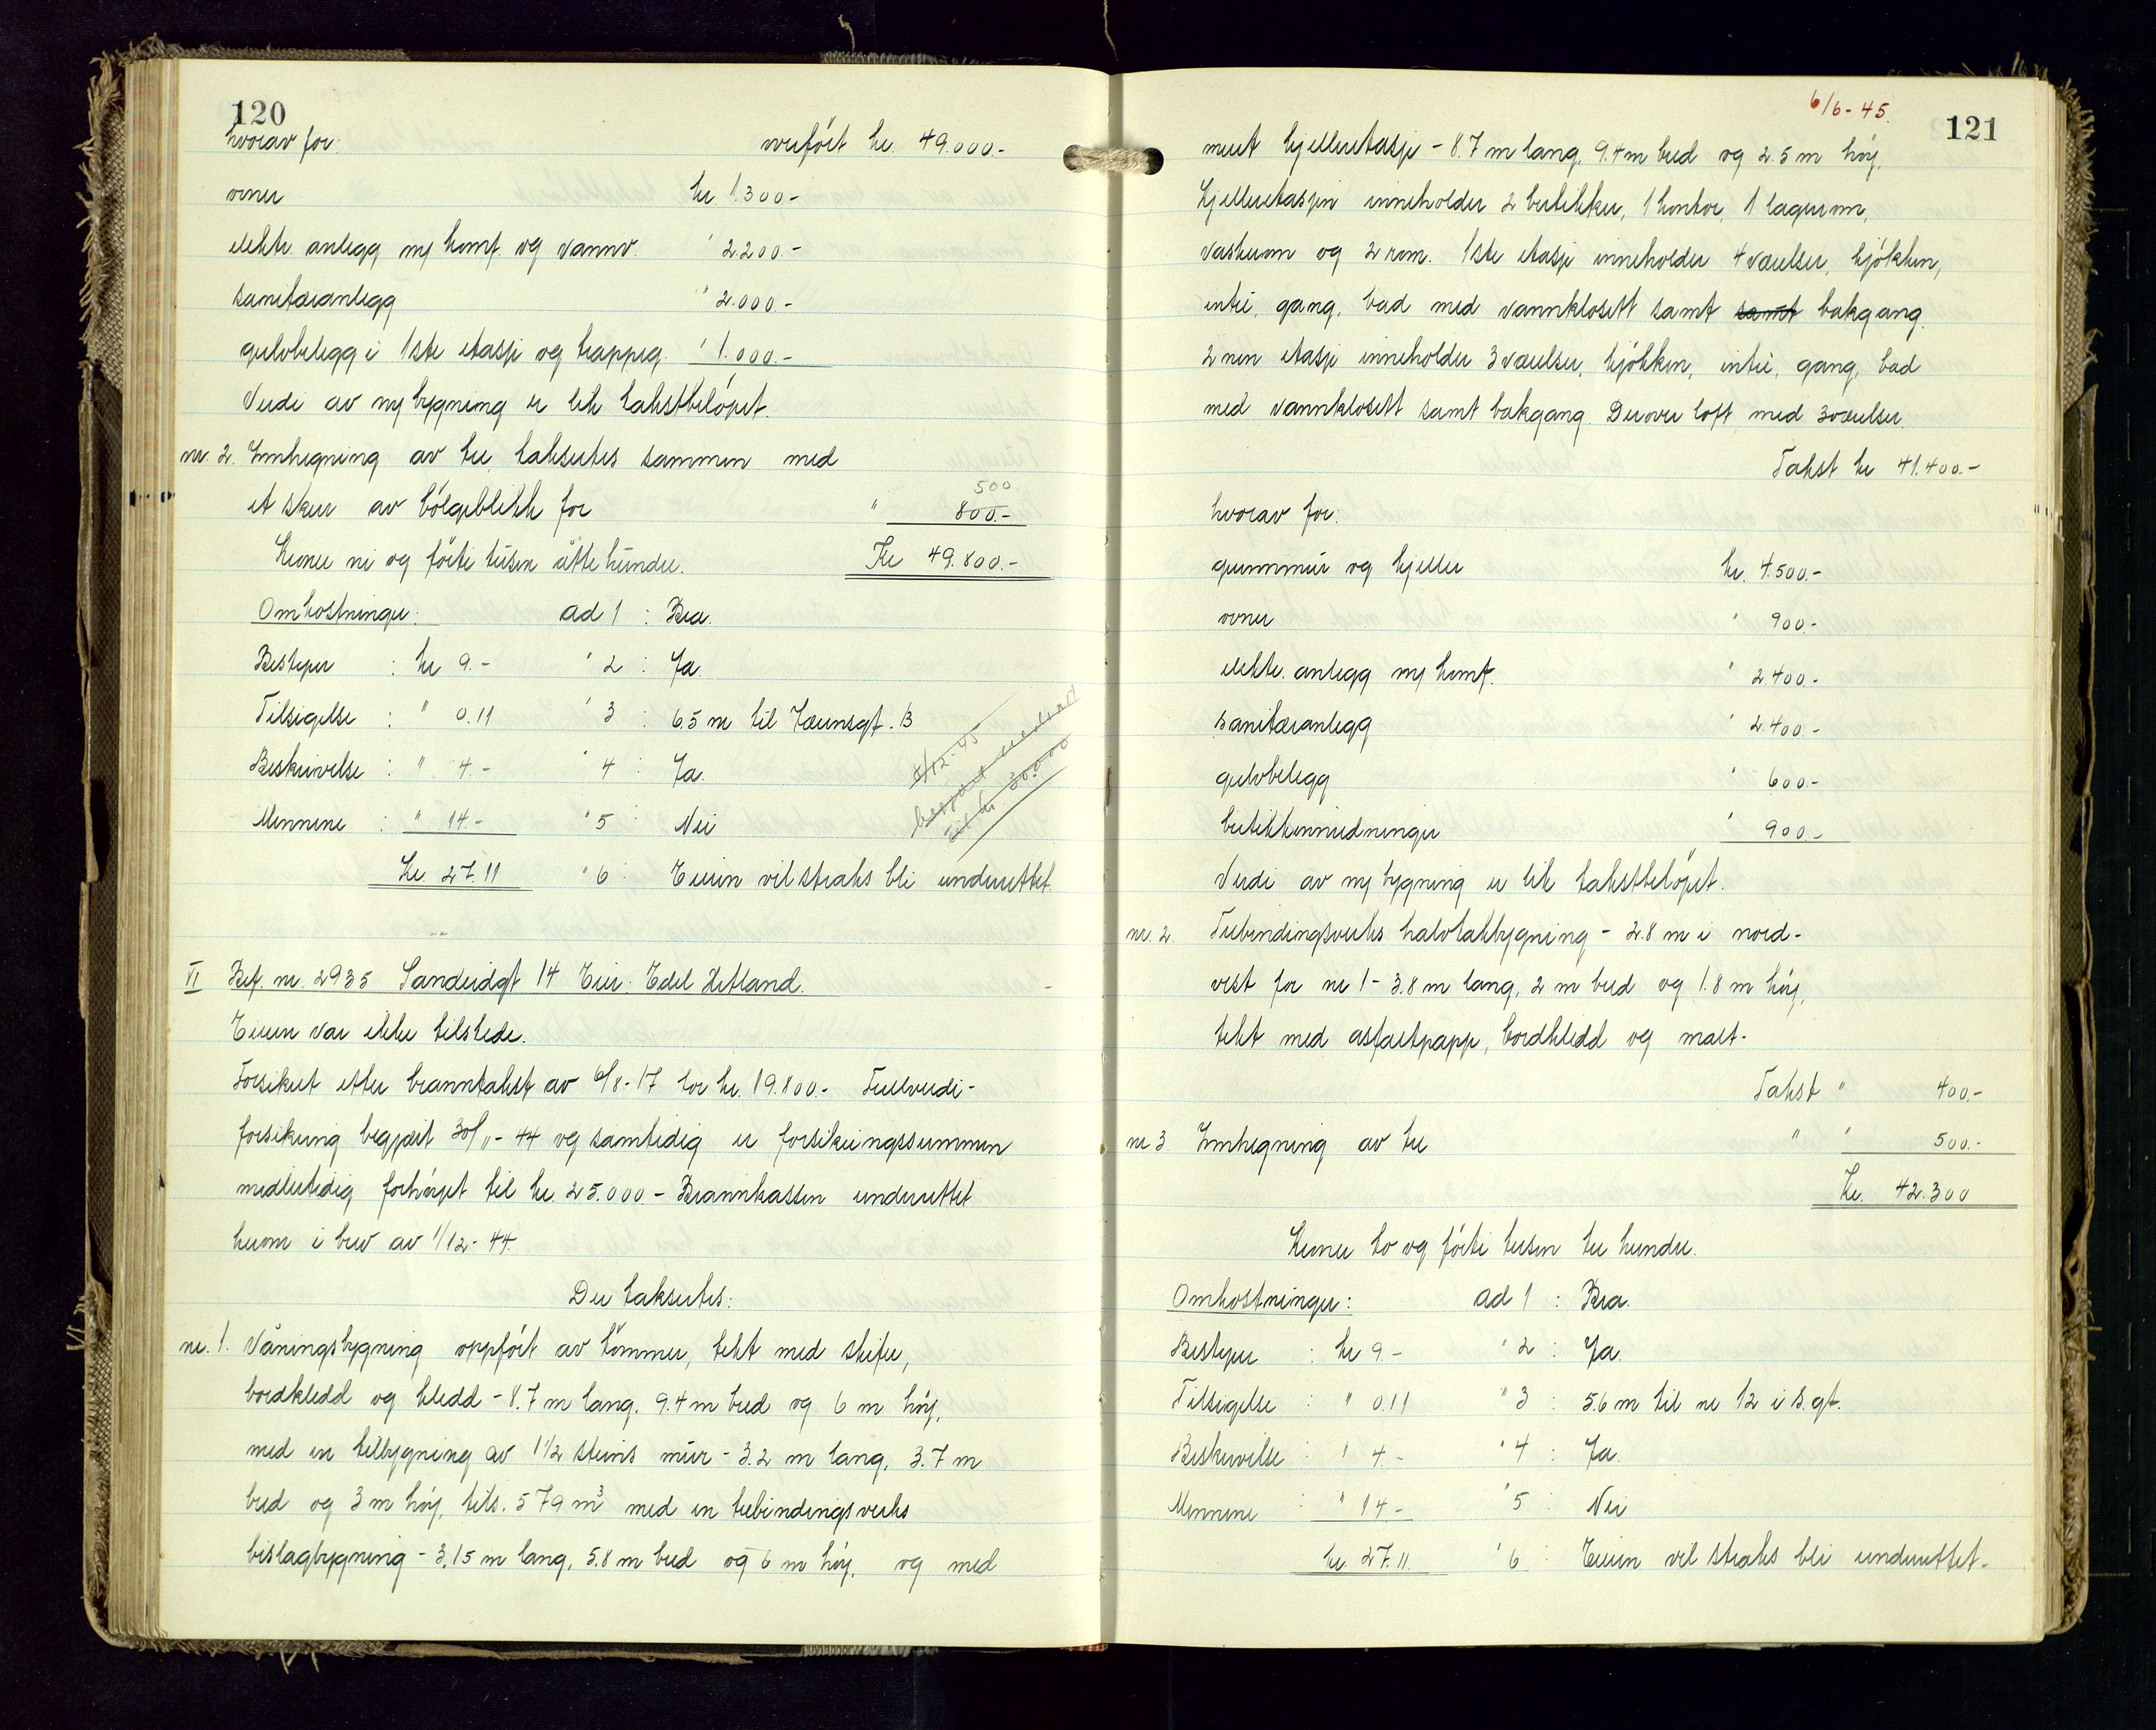 120
hvorav for: overført kr. 49.000.-
ovner kr. 1.300-
elektr. anlegg m/ komf. og vannv. " 2200-
sanitæranlegg " 2.000.-
gulvbelegg i 1ste etasje og trappeg. " 1.000.-
Verdi av ny bygning er lik takstbeløpet.
nr. 2. Innhegning av tre, takseres sammen med
500
et skur av bølgeblikk for " 800.-
Kroner ni og førti tusen åtte hundre. Kr 49.800.-
Omkostninger: ad 1 : Bra.
Bestyrer : kr 9.- " 2 : Ja.
Tilsigelse : " 0.11 " 3 : 6.5 m til Tærunsgt. 13
Beskrivelse : " 4.- " 4 : Ja.
8/12-45
begjært nedsatt
til kr 30.000
Mennene : " 14.- " 5 : Nei
Kr. 27.11 " 6 : Eieren vil straks bli underrettet.
VI Bef. nr. 2935 Sandeidgt 14 Eier: Edel Hetland.
Eieren var ikke tilstede.
Forsikret etter branntakst av 6/8-17 for kr. 19.800.- Fullverdi-
forsikring begjært 30/11-44 og samtidig er forsikringssummen
midlertidig forhøyet til kr. 25.000- Brannkassen underrettet
herom i brev av 1/12-44.
Der takseres:
nr. 1. Våningsbygning oppført av tømmer, tekt med skifer,
bordkledd og kledd - 8.7 m lang, 9.4 m bred og 6 m høy,
med en tilbygning av 1 1/2 steins mur - 3.2 m lang, 3.7 m
bred og 3 m høy, tils. 579 m3 med en trebindingsverks
bislagbygning - 3,15 m lang, 5.8 m bred og 6 m høy, og med
6/6-45.
121
muret kjelleretasje - 8.7 m lang, 9.4 m bred og 2.5 m høy,
Kjelleretasjen inneholder 2 butikker, 1 kontor, 1 lagerrom,
vaskerom og 2 rom. 1ste etasje inneholder 4 værelser, kjøkken,
entré, gang, bad med vannklosett samt samt bakgang.
2 nen etasje inneholder 3 værelser, kjøkken, entré, gang, bad
med vannklosett samt bakgang. Derover loft med 3 værelser.
Takst kr 41.400.-
hvorav for:
grunnmur og kjeller kr. 4.500.-
ovner " 900.-
elektr. anlegg m/ komf. " 2.400.-
sanitæranlegg " 2.400.-
gulvbelegg " 600.-
butikkinnredninger " 900.-
Verdi av ny bygning er lik takstbeløpet.
nr. 2. Trebindingsverks halvtakbygning - 2.8 m i nord-
vest for nr 1 - 3.8 m lang, 2 m bred og 1.8 m høy,
tekt med asfaltpapp, bordkledd og malt.
Takst " 400.-
nr 3. Innhegning av tre " " 500.-
Kr. 42.300
Kroner to og førti tusen tre hundre.
Omkostninger: ad 1 : Bra.
Bestyrer : kr 9.- " 2 : Ja.
Tilsigelse : " 0.11 " 3 : 5.6 m til nr 12 i S.gt.
Beskrivelse : " 4.- " 4 : Ja.
Mennene : " 14.- " 5 : Nei
kr. 27.11. " 6 : Eieren vil straks bli underrettet.